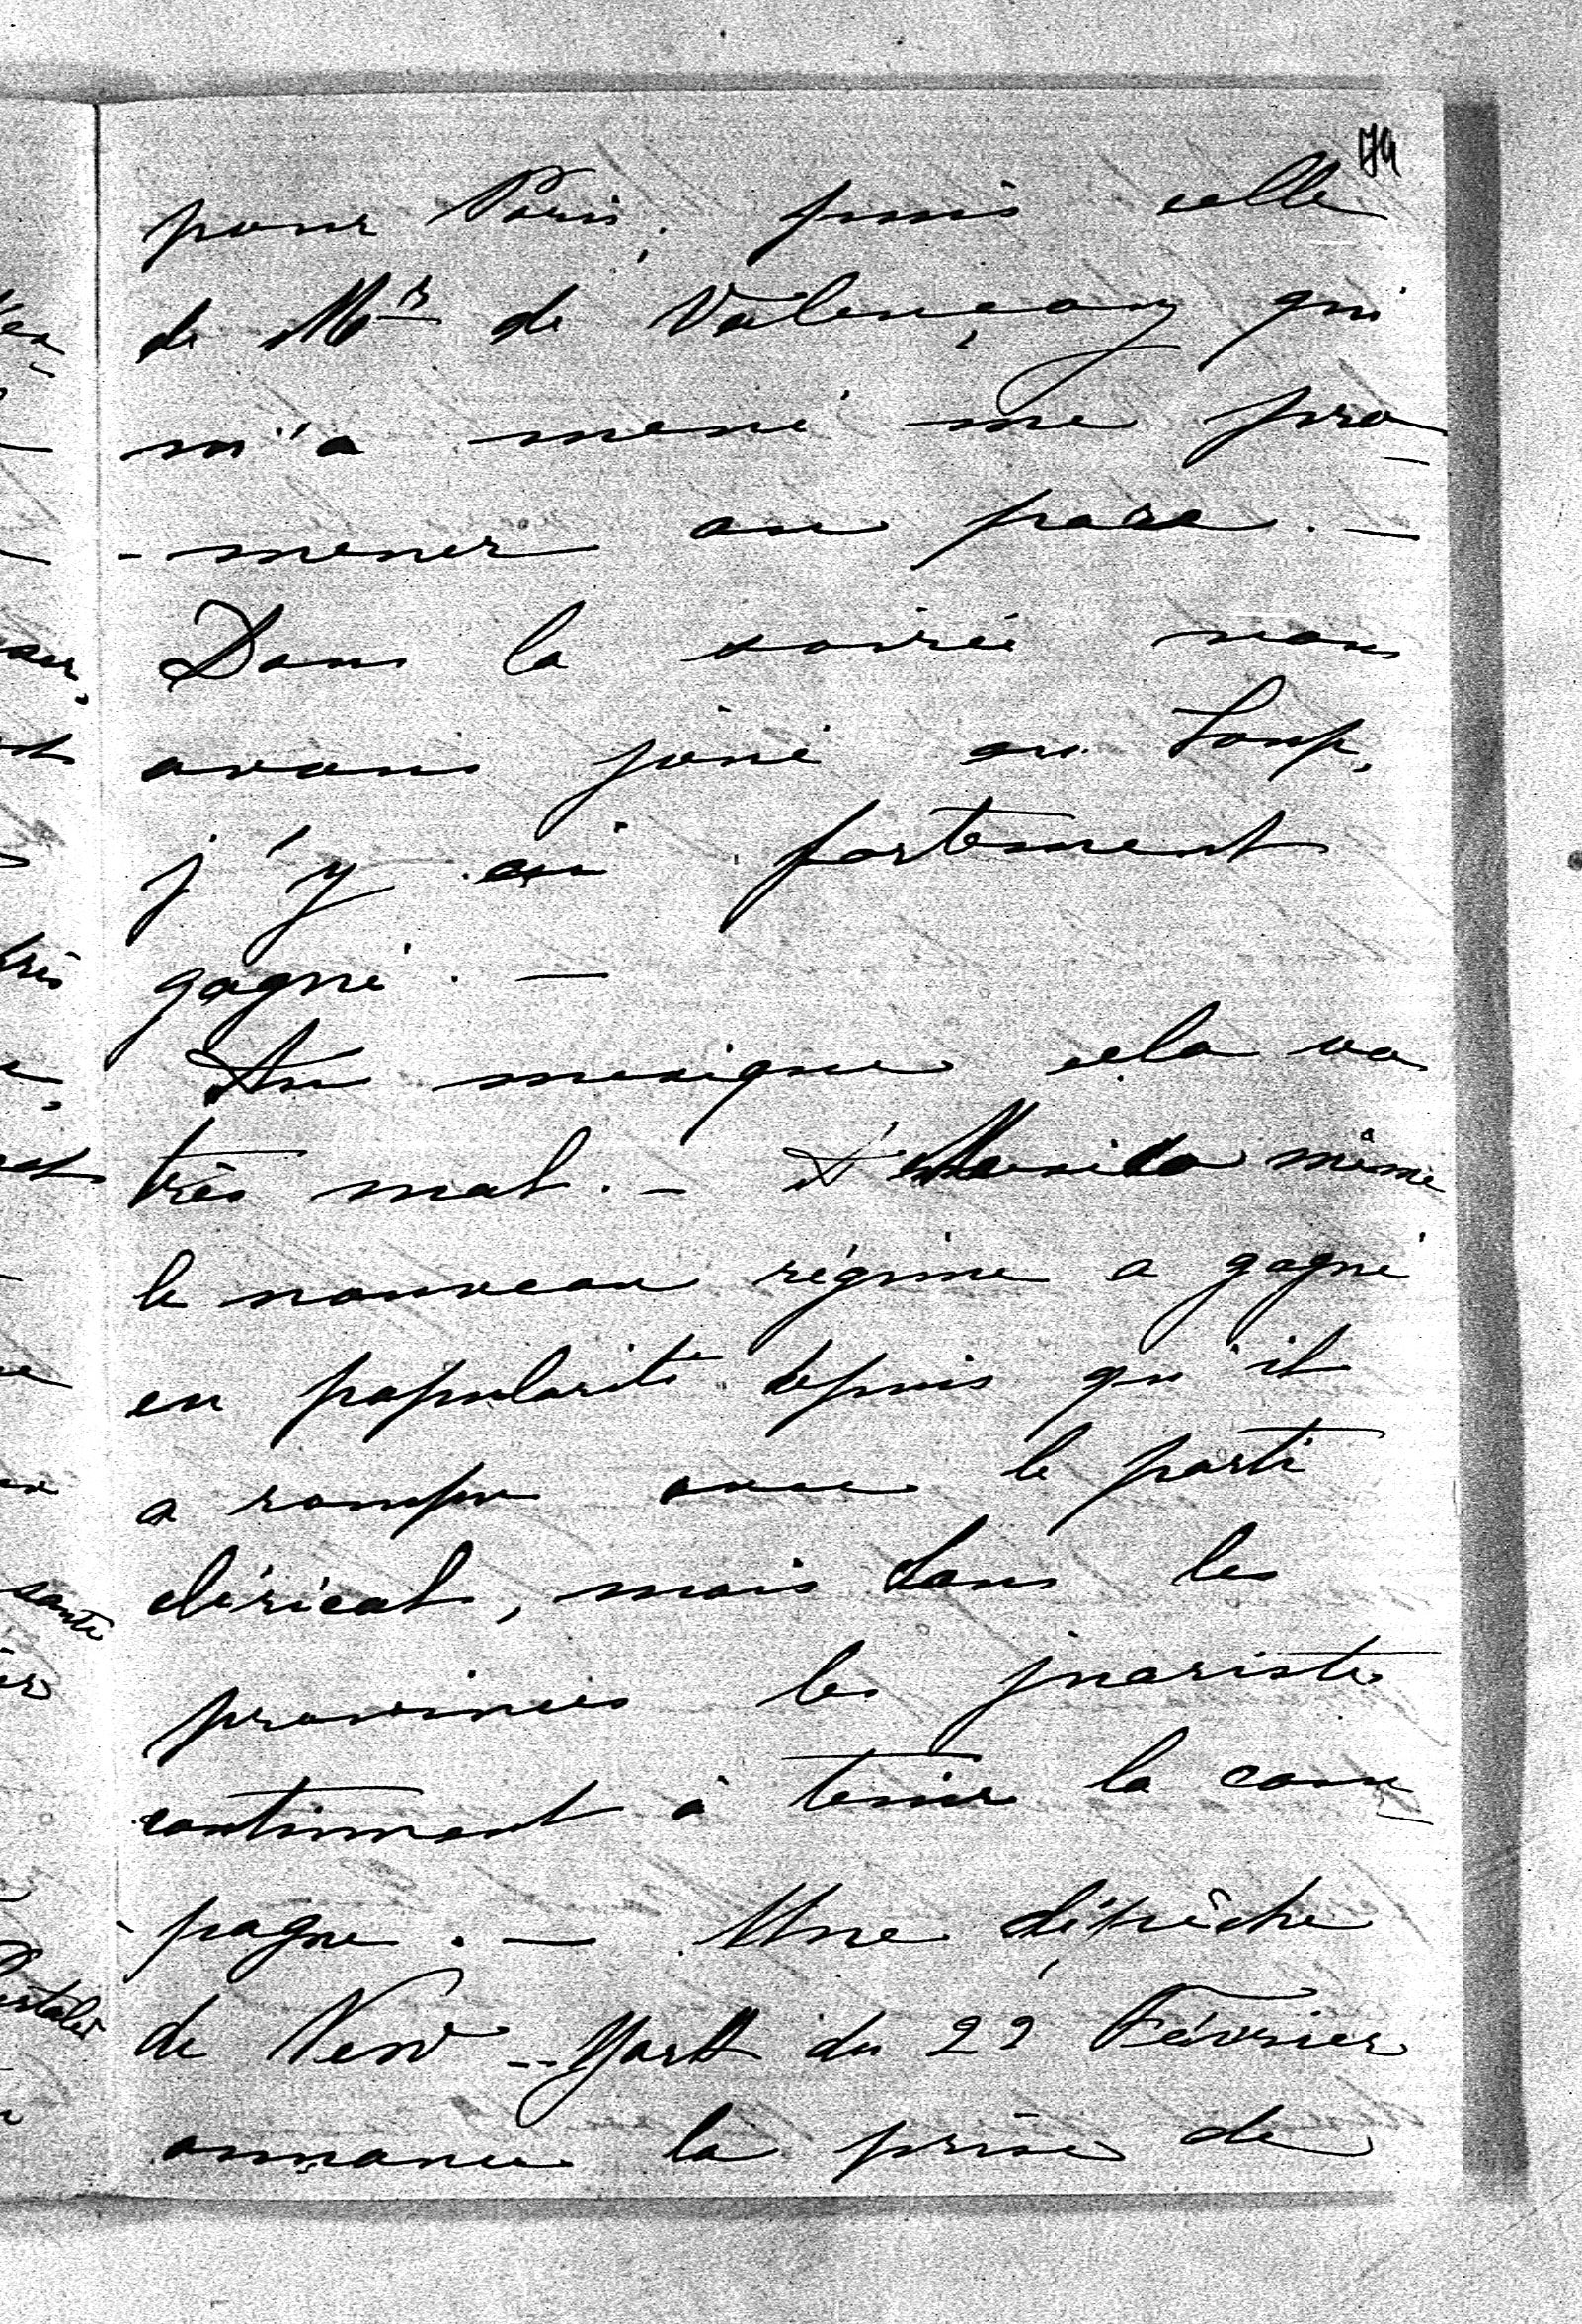 74
pour Paris; puis celle
de Mr de Valençay qui
m'a mené me pro-
-mener au parc. —
Dans la soirée nous
avons joué au Loup,
j'y ai fortement
gagné. —
Au mexique cela va
très mal. — A Mexico même
le nouveau régime a gagné
en popularité depuis qu'il
a rompu avec le parti
clérical, mais dans les
provinces les juaristes
continuent à tenir la cam-
-pagne. — Une dépêche
de New-York du 22 Février
annonce la prise de